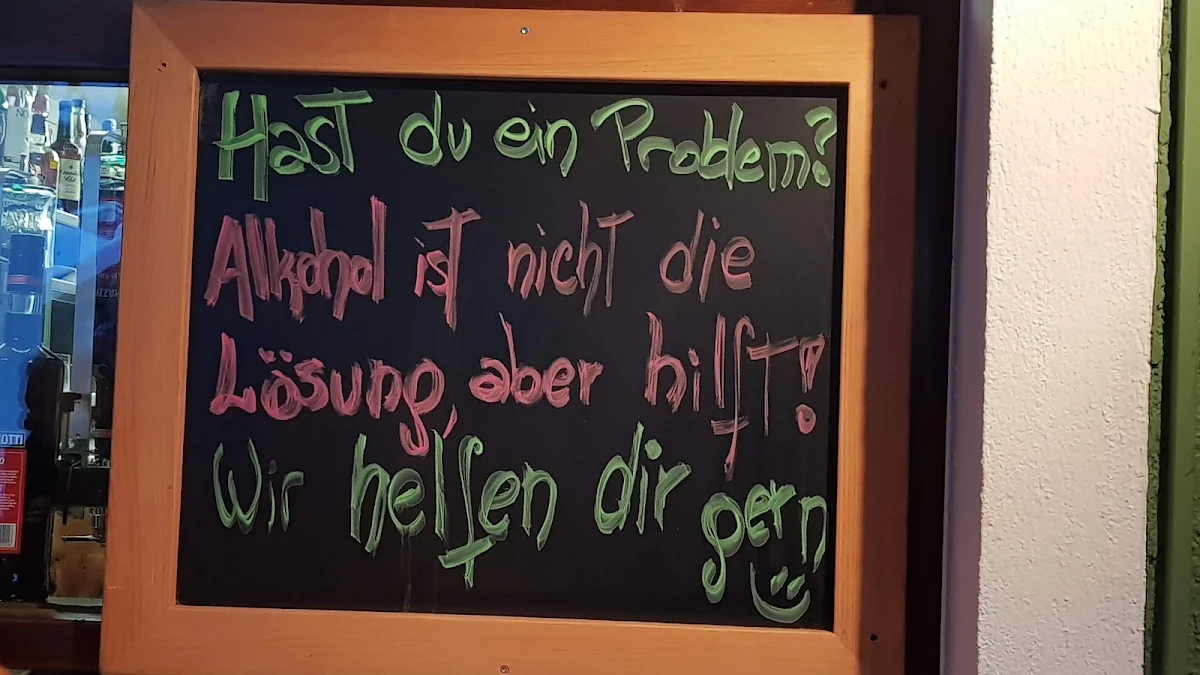 Hast du ein Problem?
Alkohol ist nicht die
Lösung, aber hilft!
Wir helfen dir gern